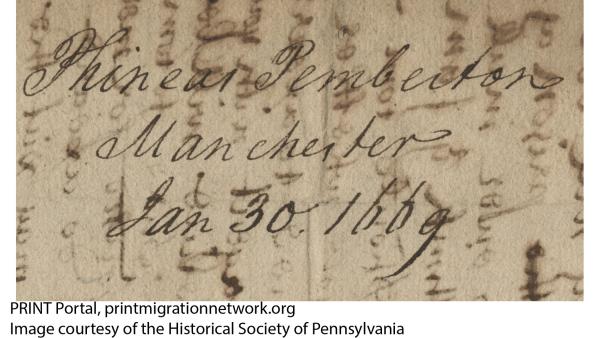 Phineas Pemberton
Manchester
Jan 30. 1669
PRINT Portal, printmigrationnetwork.org
Image courtesy of the Historical Society of Pennsylvania